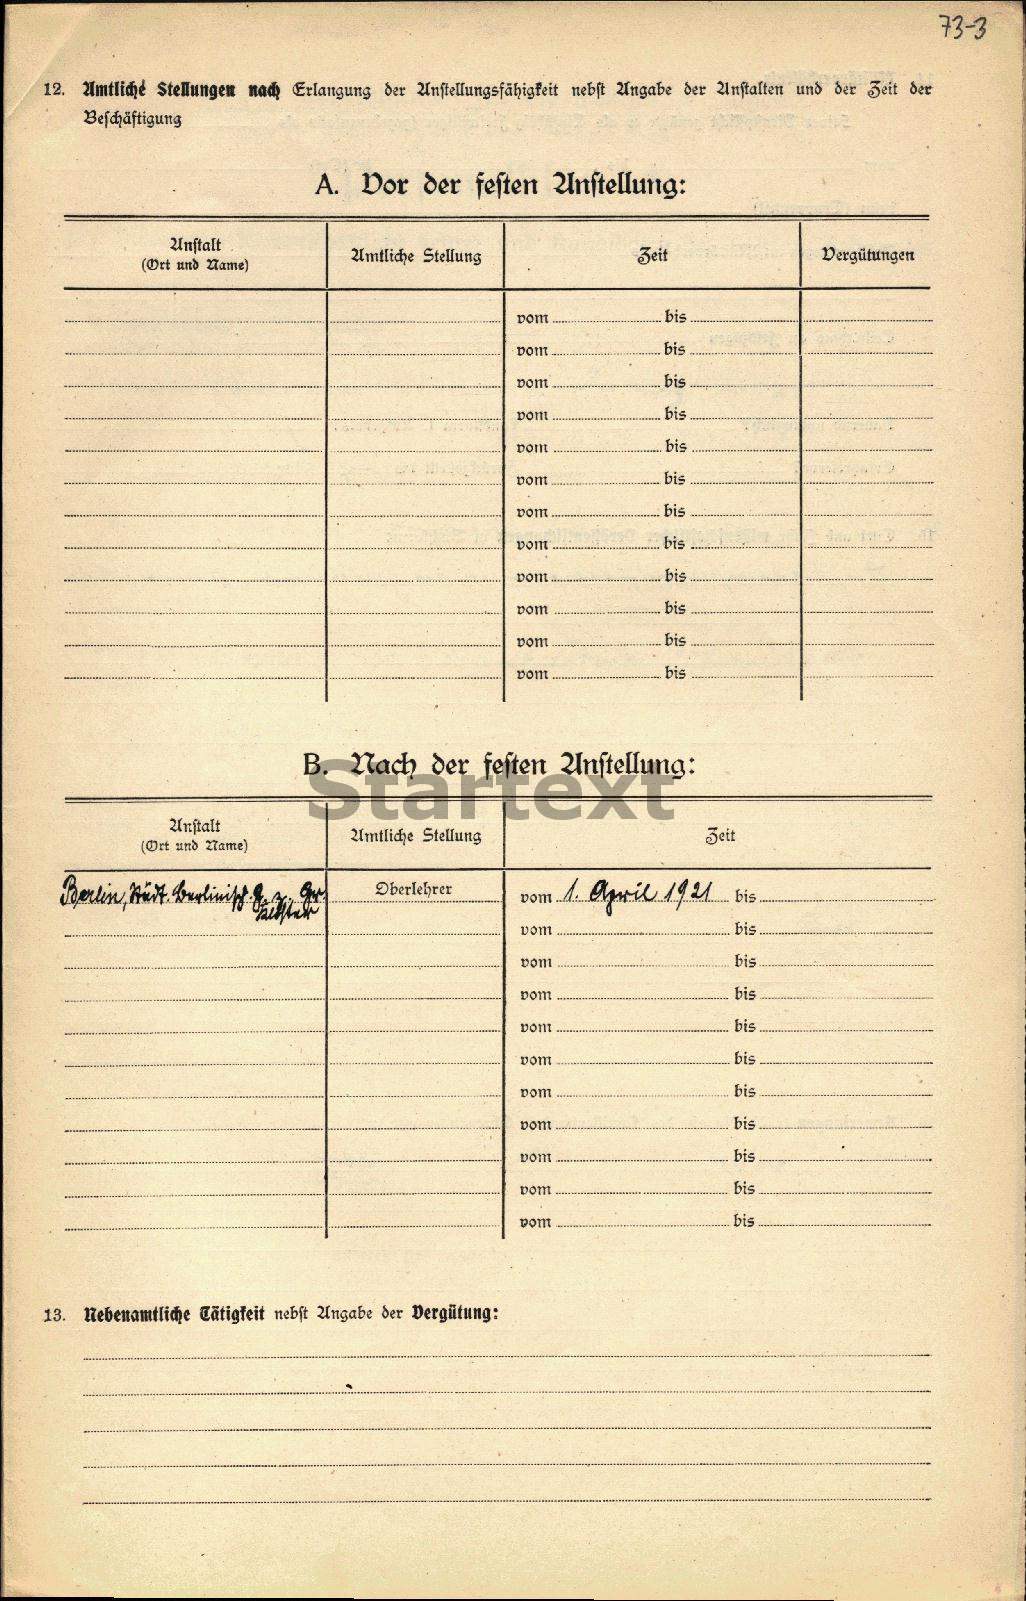 73-3
12. Amtliche Stellungen nach Erlangung der Anstellungsfähigkeit nebst Angabe der Anstalten und der Zeit der
Beschäftigung
A. Vor der festen Anstellung:
Anstalt
(Ort und Name)
Amtliche Stellung
Zeit
Vergütungen
vom bis
vom bis
vom bis
vom bis
vom bis
vom bis
vom bis
vom bis
vom bis
vom bis
vom bis
vom bis
B. Nach der festen Anstellung:
Startext
Anstalt
(Ort und Name)
Amtliche Stellung
Zeit
Berlin, Städt. Berlinisch. G. z. Gr. Oberlehrer vom 1. April 1921 bis
Kloster
vom bis
vom bis
vom bis
vom bis
vom bis
vom bis
vom bis
vom bis
vom bis
vom bis
13. Nebenamtliche Tätigkeit nebst Angabe der Vergütung: